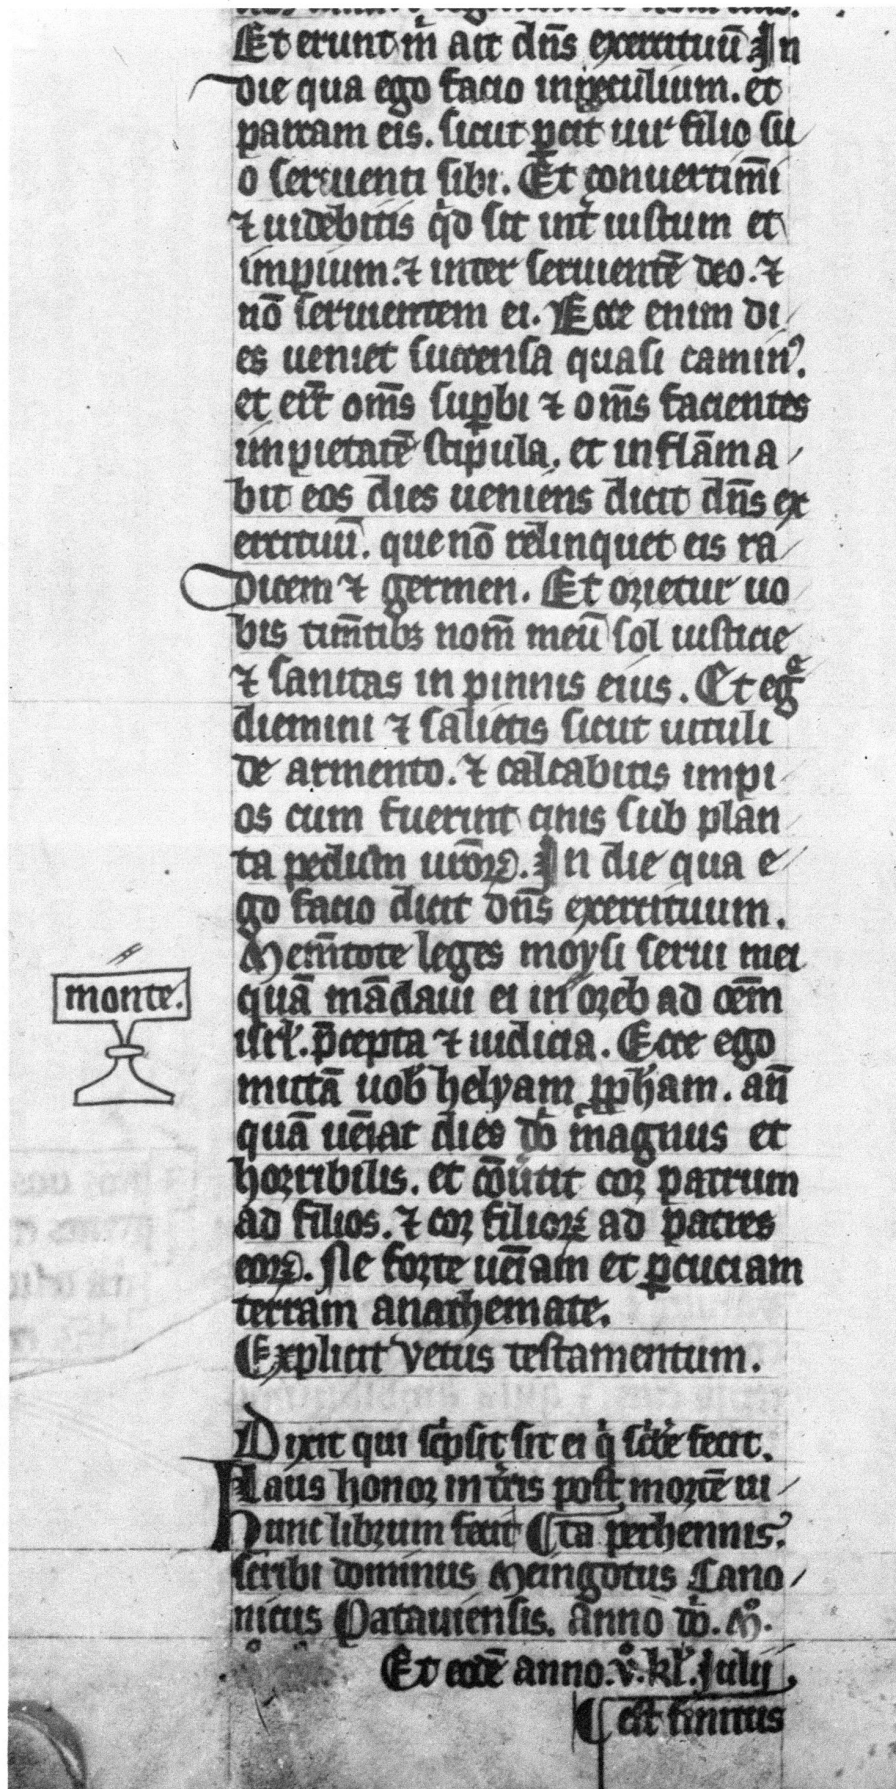 Et erunt m̄ ait dn̄s exercituū. In
die qua ego facio in peculium. et
parcam eis. sicut p̲cit uir filio su
o seruienti sibi. Et conuertimī
⁊ uidebitis qͥd sit int̄ iustum et
impium. ⁊ inter seruientē deo. ⁊
nō seruientem ei. Ecce enim di
es ueniet succensa quasi camin⁹.
et er̄t om̄s sup̲bi ⁊ om̄s facientes
impietatē stipula. et inflāma
bit eos dies ueniens dicit dn̄s ex
ercituū. que nō relinquet eis ra
dicem ⁊ germen. Et orietur uo
bis tim̄tibꝫ nom̄ meū sol iusticie
⁊ sanitas in pinnis eius. Et egͤ
diemini ⁊ salietis sicut uituli
de armento. ⁊ calcabitis impi
os cum fuerint cinis sub plan
ta pedum ur̄oꝝ. In die qua e
go facio dicit dn̄s exercituum.
Mem̄tote leges moysi serui mei
quā mādaui ei in oreb ad oēm
isrl̓. p̄cepta ⁊ iudicia. Ecce ego
mittā uob̓ helyam ꝓph̓am. an̄
quā ueīat dies dn̓i magnus et
horribilis. et cōu̓tit cor patrum
ad filios. ⁊ cor filioꝝ ad patres
eoꝝ. Ne forte ueīam et p̲cuciam
terram anathemate.
Explicit vetus testamentum.
monte.
Dixit qui sc̓psit sit ei qͥ sc̓b̓e fecit.
Laus honor in t̓ris post mortē ui
Hunc librum fecit ¶ ta perhennis.
scribi dominus Meingotus Cano
nicus Patauiensis. anno dn̓i. Mͦ.
Et eodē anno. vͦ. kl̓. Julij
¶ est finitus